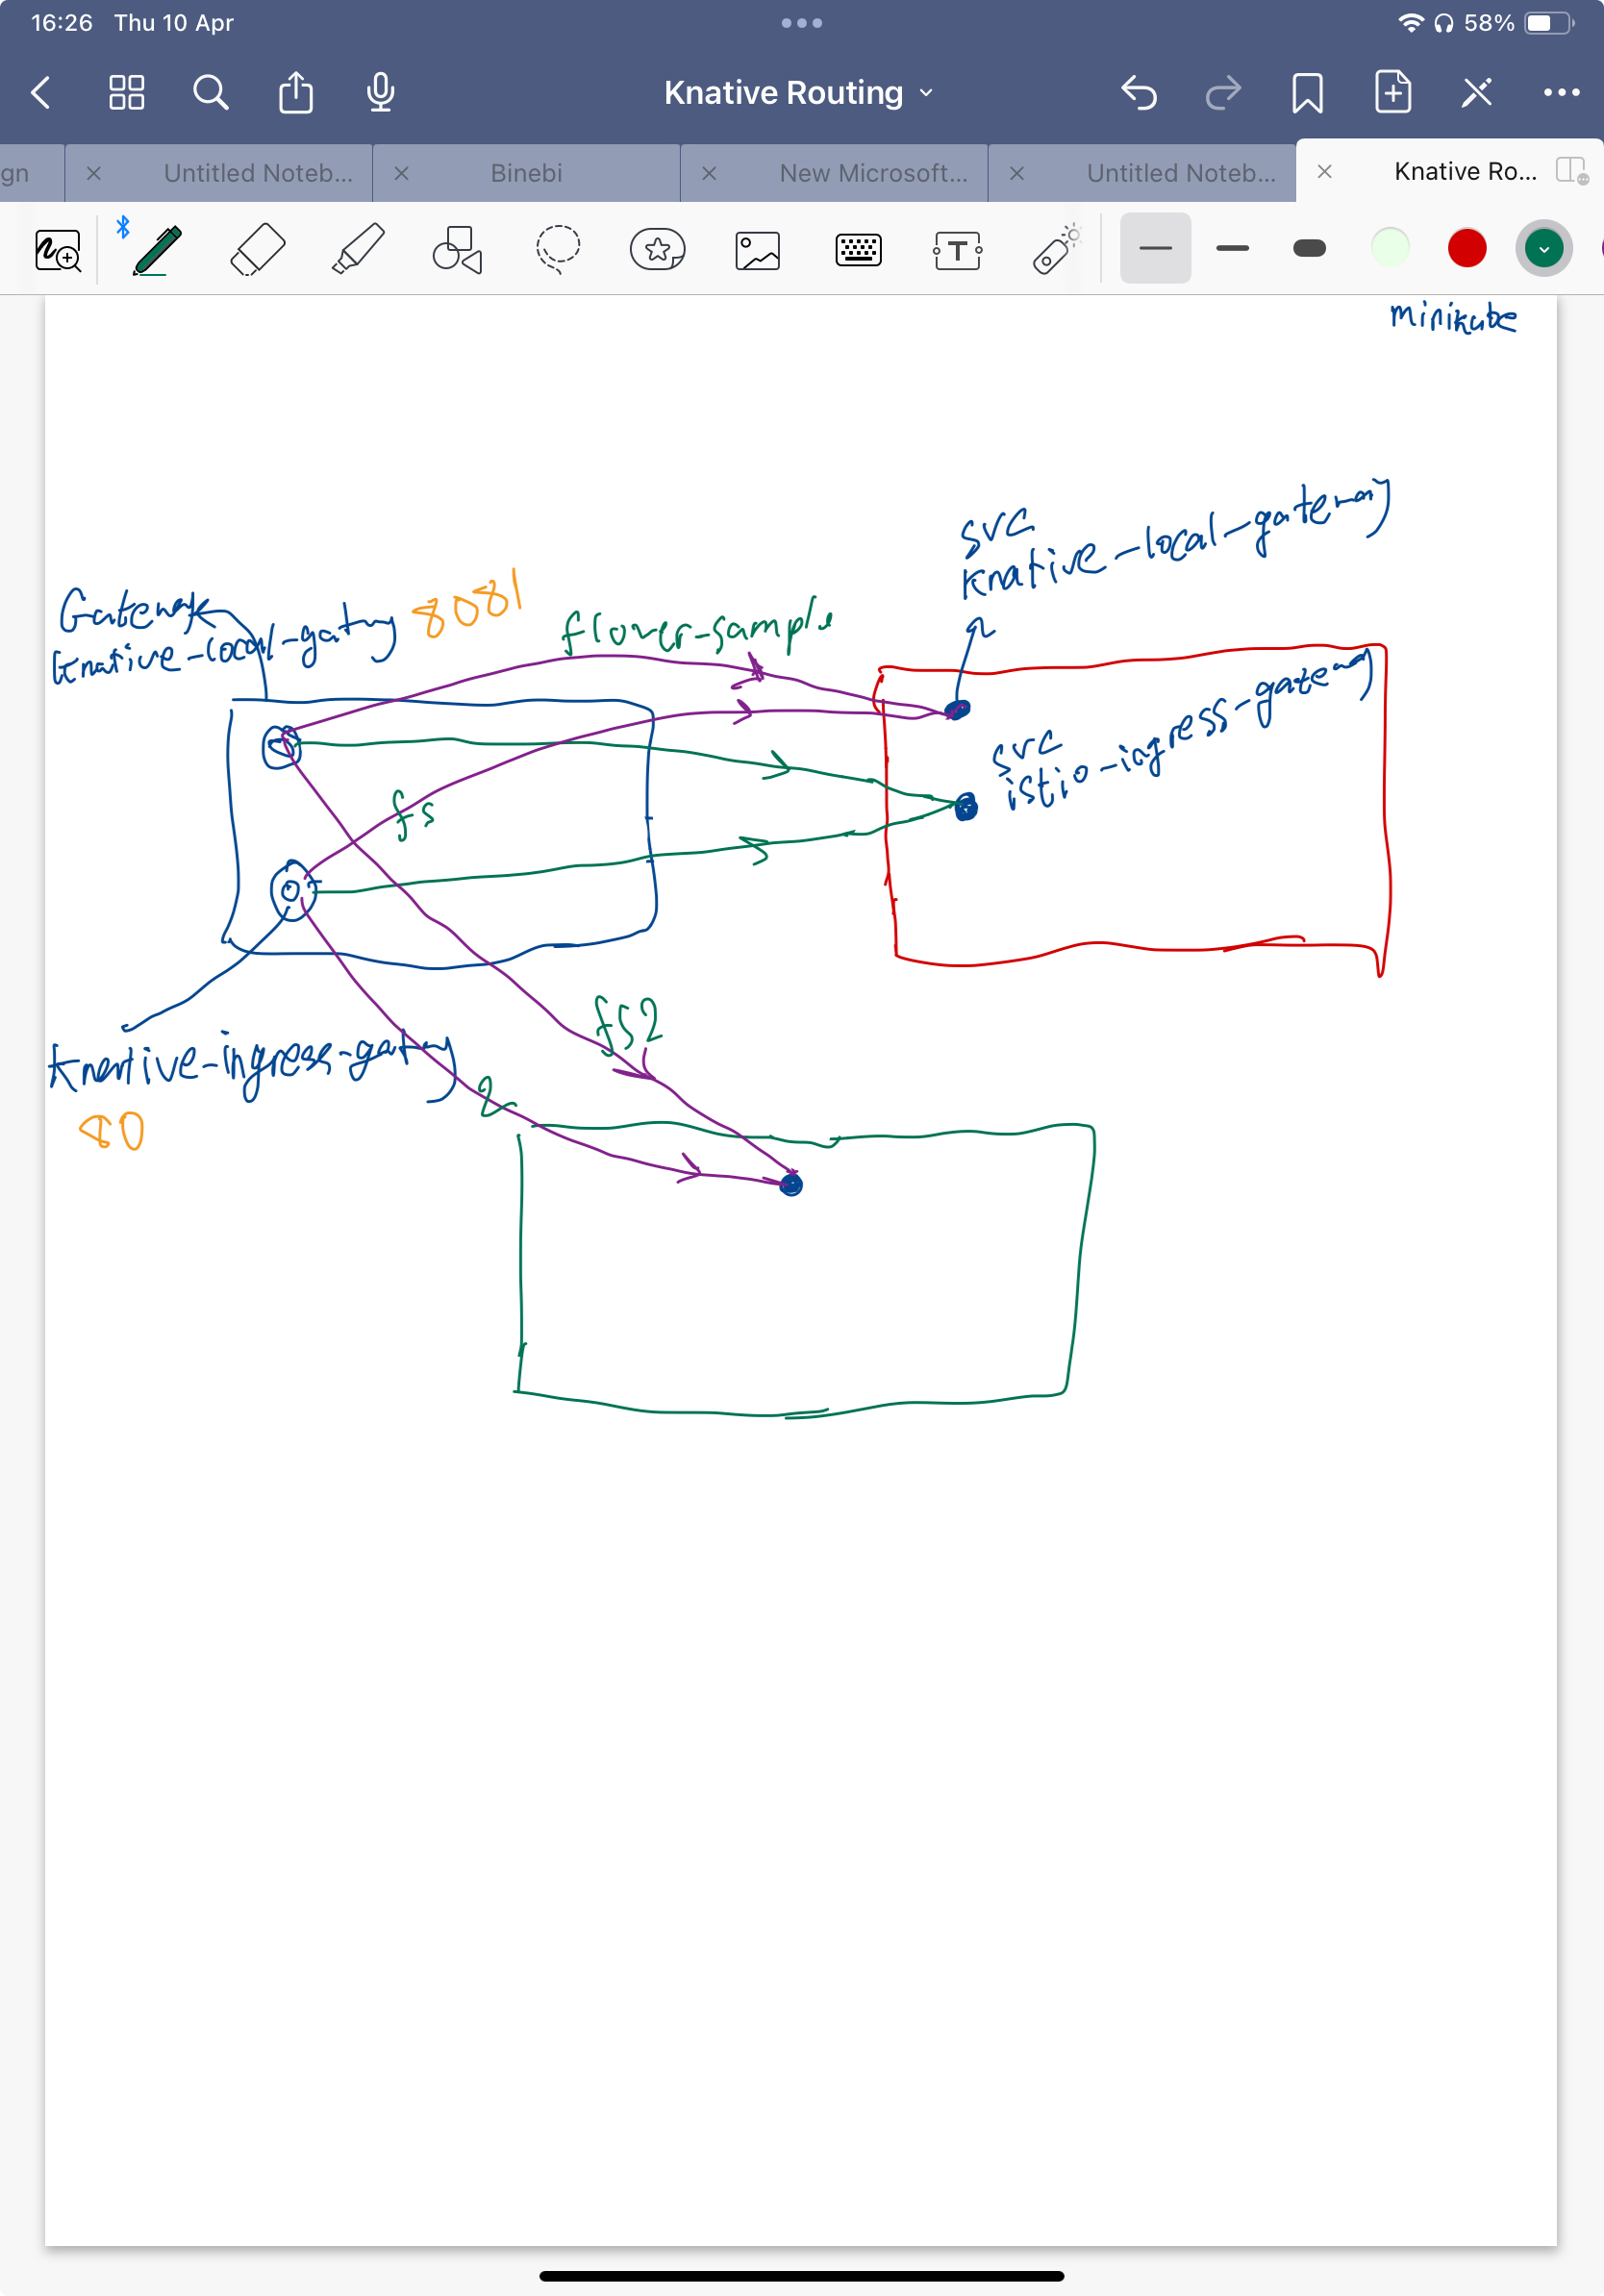 16:26 Thu 10 Apr
58%
Knative Routing
gn
Untitled Noteb...
Binebi
New Microsoft...
Untitled Noteb...
Knative Ro...
T
minikube
svc
knative-local-gateway
Gateway
knative-local-gatwy 8081
flower-sample
svc
istio-ingress-gateway
fs
fs2
knative-ingress-gatwy
2
80